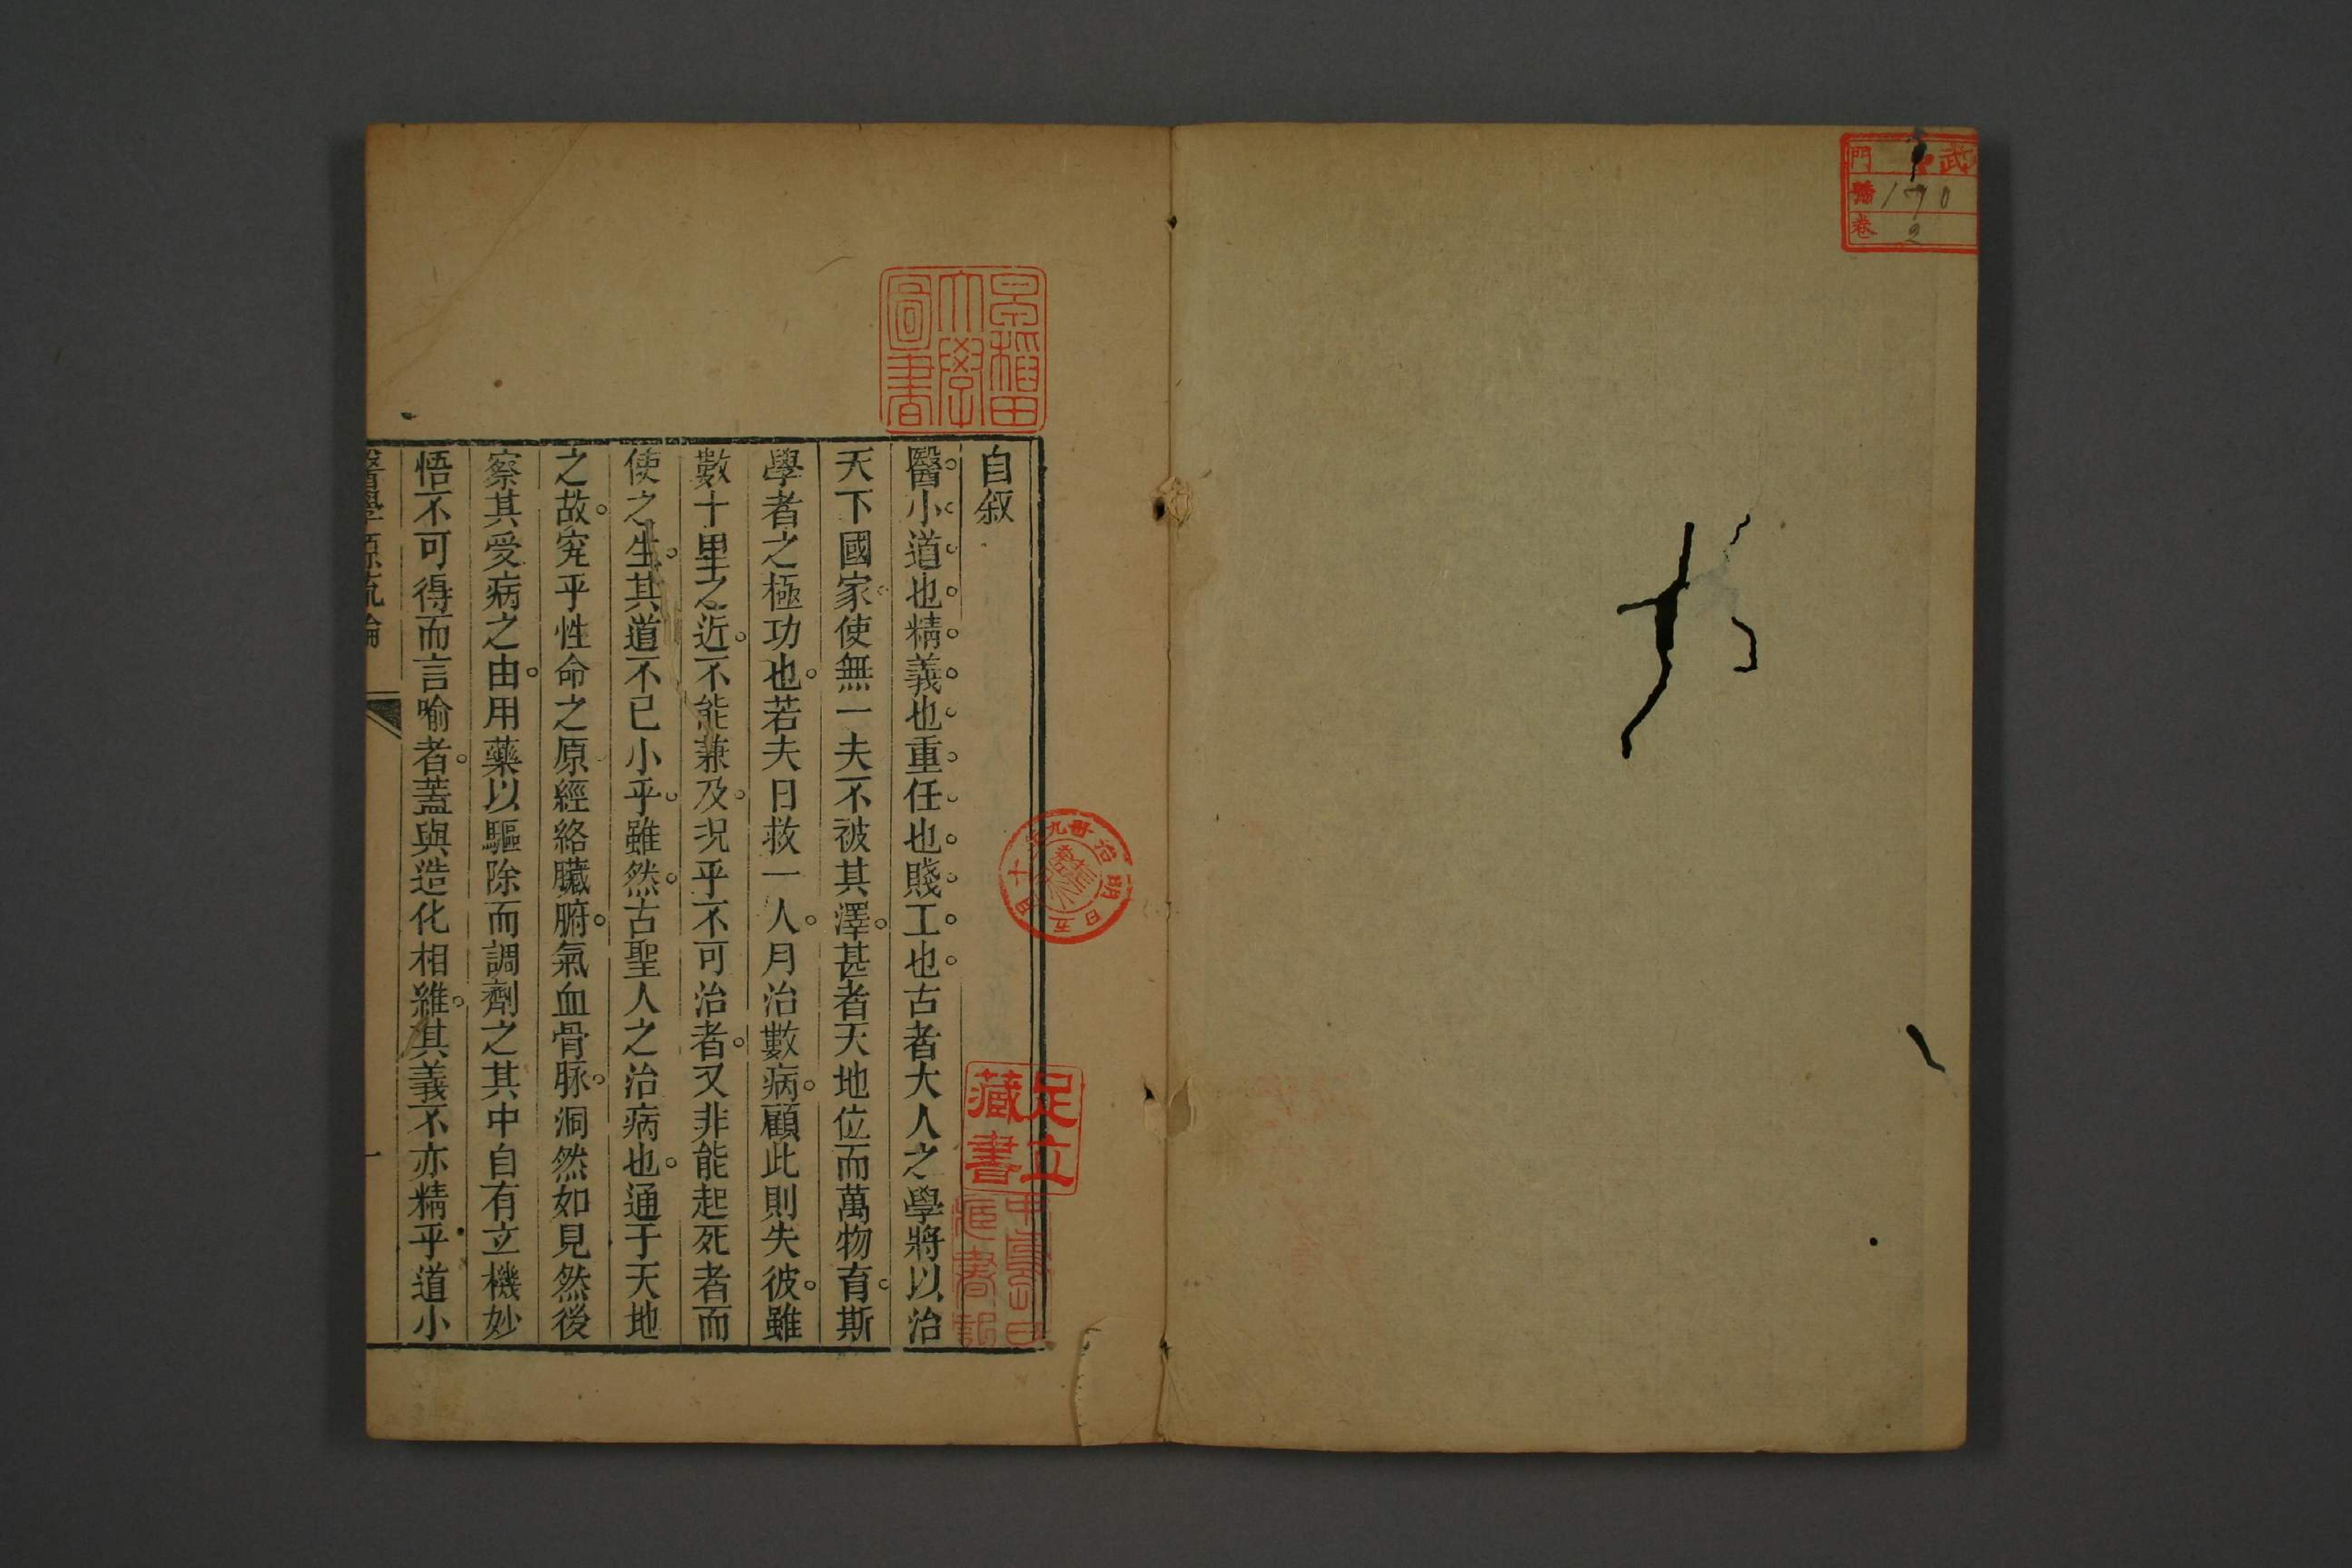 武
門
號 170
卷 2
早稲田
大學
圖書
自叙
醫。小。道。也。精。義。也。重。任。也。賤。工。也。古者大人之學將以治
天下國家。使無一夫不被其澤。甚者天地位而萬物育。斯
學者之極功也。若夫日救一人。月治數病。顧此則失彼。雖
數十里之近。不能兼及。况乎不可治者。又非能起死者而
使之生。其道不已小乎。雖然。古聖人之治病也。通于天地
之故。究乎性命之原經絡臟腑。氣血骨脉。洞然如見然後
察其受病之由。用藥以驅除而調劑之其中自有立機妙
悟不可得而言喻者。蓋與造化相維。其義不亦精乎道小
醫學源流論
一
足立
藏書